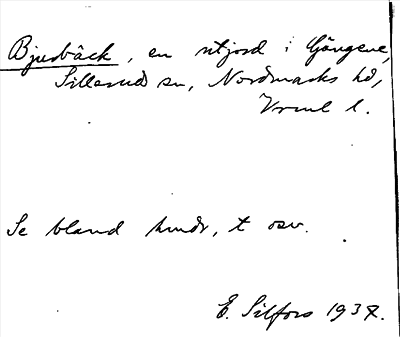 Bjurbäck, en utjord i Gängene,
Sillerud sn, Nordmarks hd,
Vrml l.
Se bland hmdr, t osv.
E. Silfors 1937.